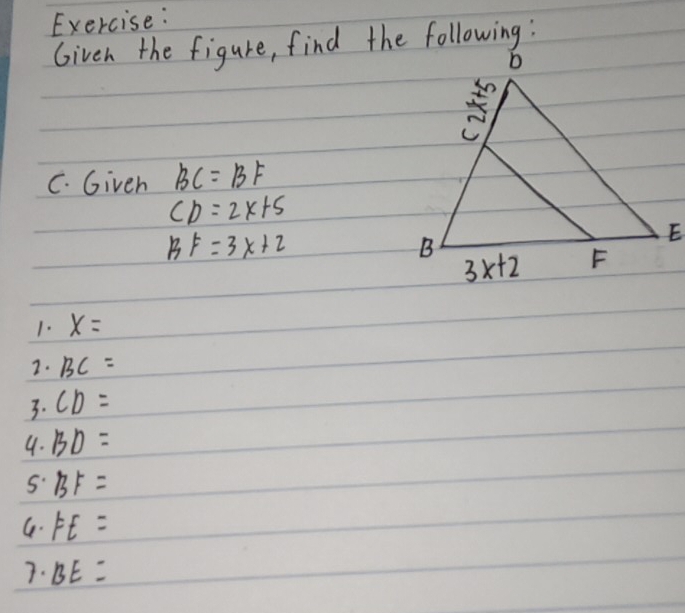 Exercise:
Given the figure, find the following:
D
C 2x+5
C. Given BC = BF
CD = 2x+5
BF = 3x+2
B
F
E
3x+2
1. X =
2. BC =
3. CD =
4. BD =
5. BF =
6. FE =
7. BE =